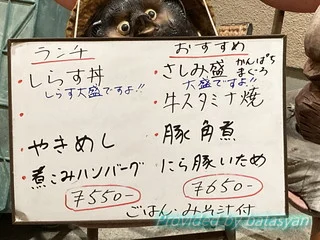 ランチ
しらす丼
しらす大盛ですよ!!
やきめし
煮こみハンバーグ
¥550-
おすすめ
さしみ盛 かんぱち
まぐろ
大盛ですよ!!
牛スタミナ焼
豚角煮
にら豚いため
¥650-
ごはん・みそ汁付
Provided by batasyan